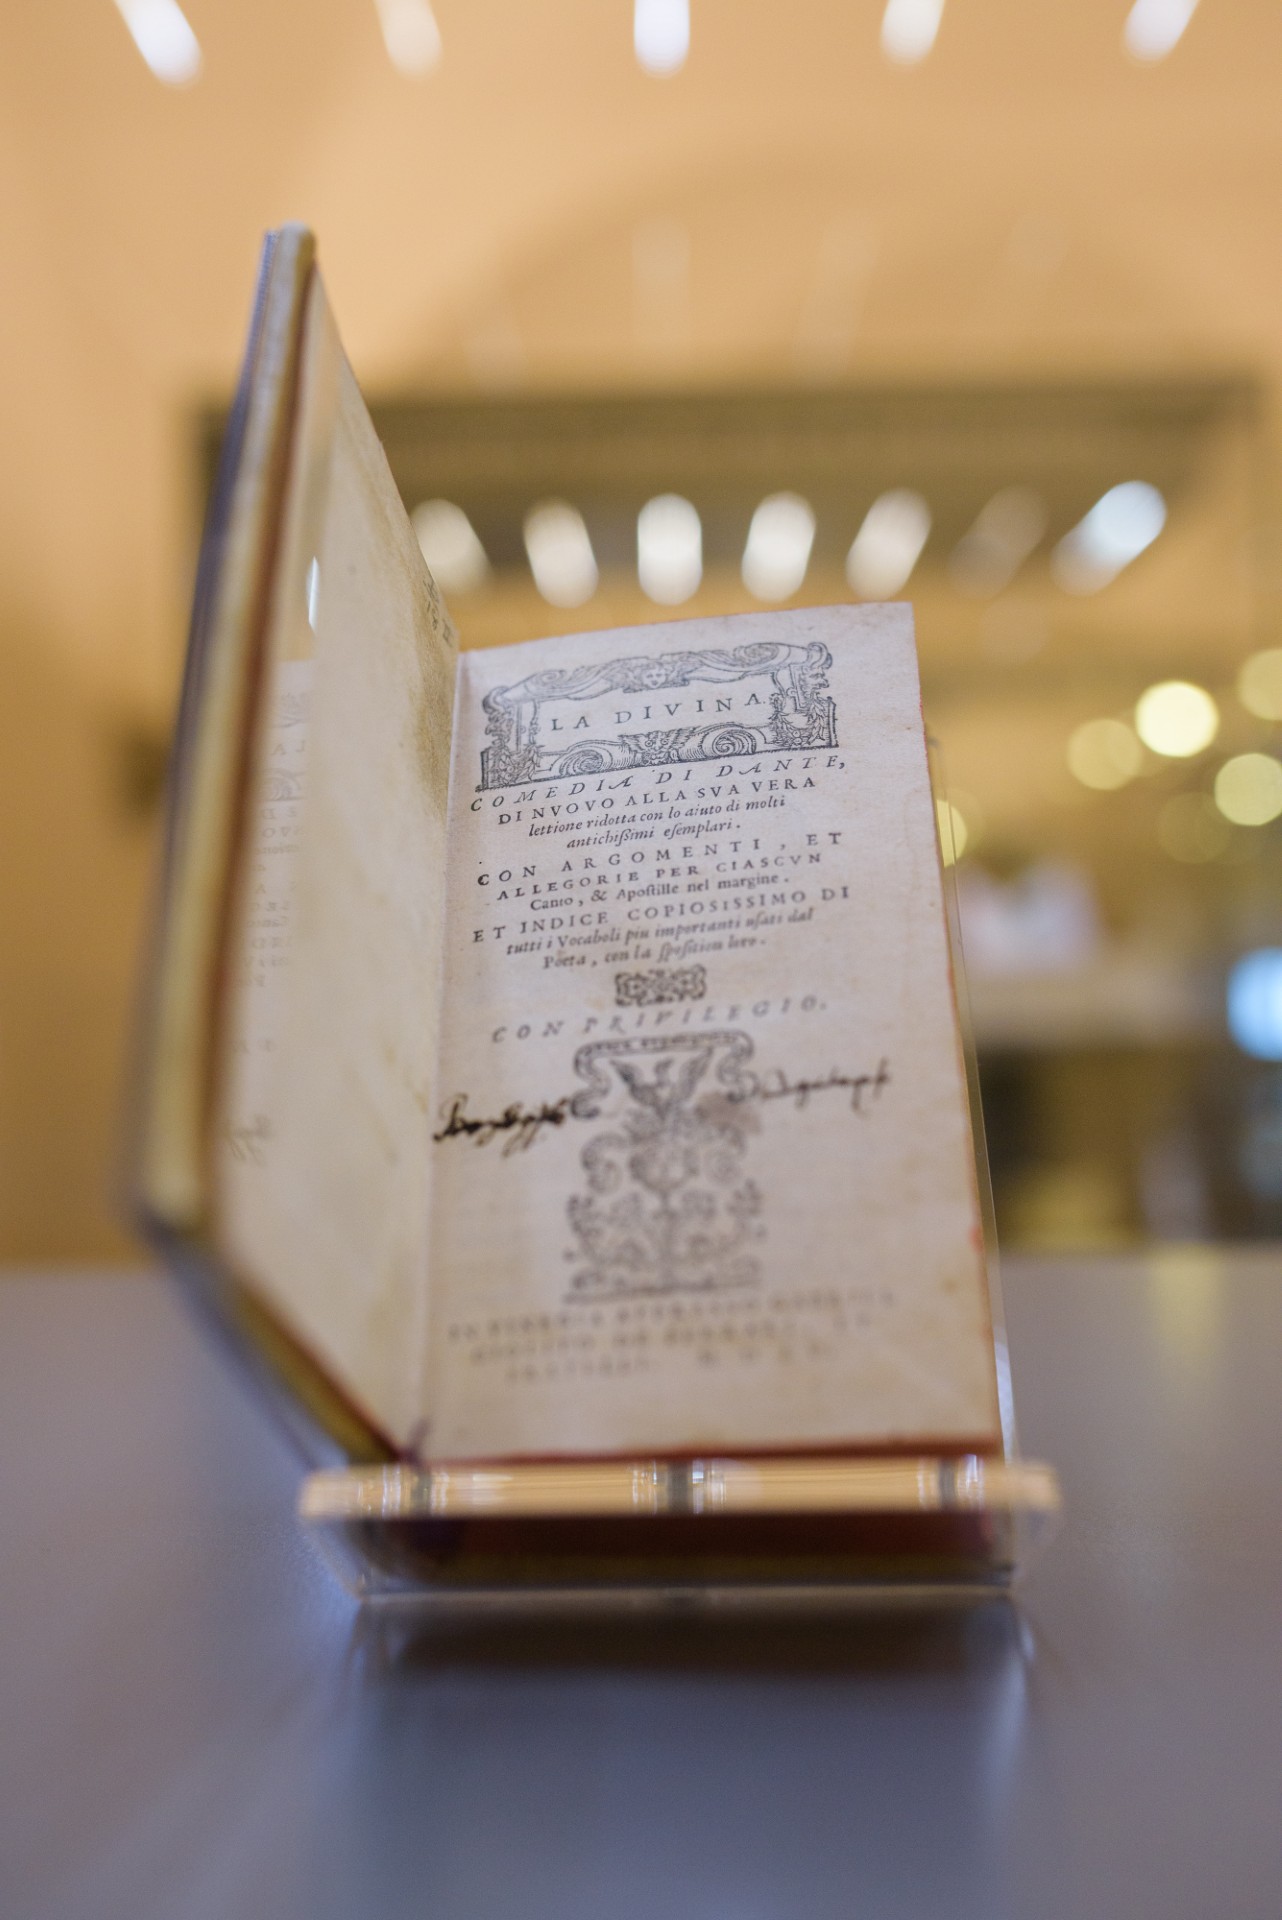 LA DIVINA
COMEDIA DI DANTE,
DI NVOVO ALLA SVA VERA
lettione ridotta con lo aiuto di molti
antichißimi eſemplari.
CON ARGOMENTI, ET
ALLEGORIE PER CIASCVN
Canto, & Apoſtille nel margine.
ET INDICE COPIOSISSIMO DI
tutti i Vocaboli piu importanti uſati dal
Poeta, con la ſpoſition loro.
CON PRIVILEGIO.
IN VINEGIA APPRESSO GABRIEL
GIOLITO DE FERRARI, ET
FRATELLI.